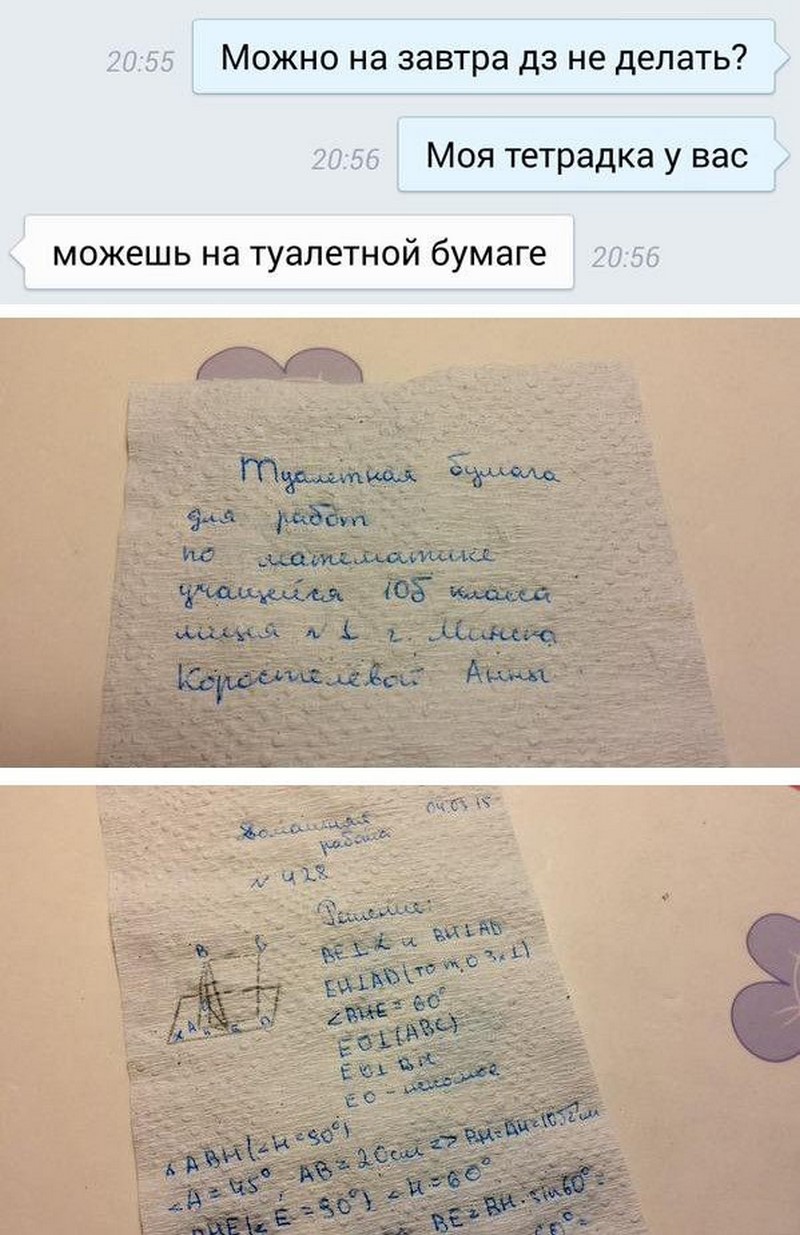 20:55 Можно на завтра дз не делать?
20:56 Моя тетрадка у вас
можешь на туалетной бумаге 20:56
Туалетная бумага
для работ
по математике
учащейся 10Б класса
лицея №1 г. Минска
Коростелёвой Анны
Домашняя 04.03.15
работа
№ 428
Решение:
BE⊥α и BH⊥AD
EH⊥AD (по т. о 3х⊥)
∠BHE = 60°
EO⊥(ABC)
EO⊥BH
EO - искомое
B
A
H
E
D
ABH (∠H=90°)
∠A = 45°, AB = 20см => BH=AH=10√2см
BHE (∠E = 90°) ∠H = 60°
BE = BH · sin60° =